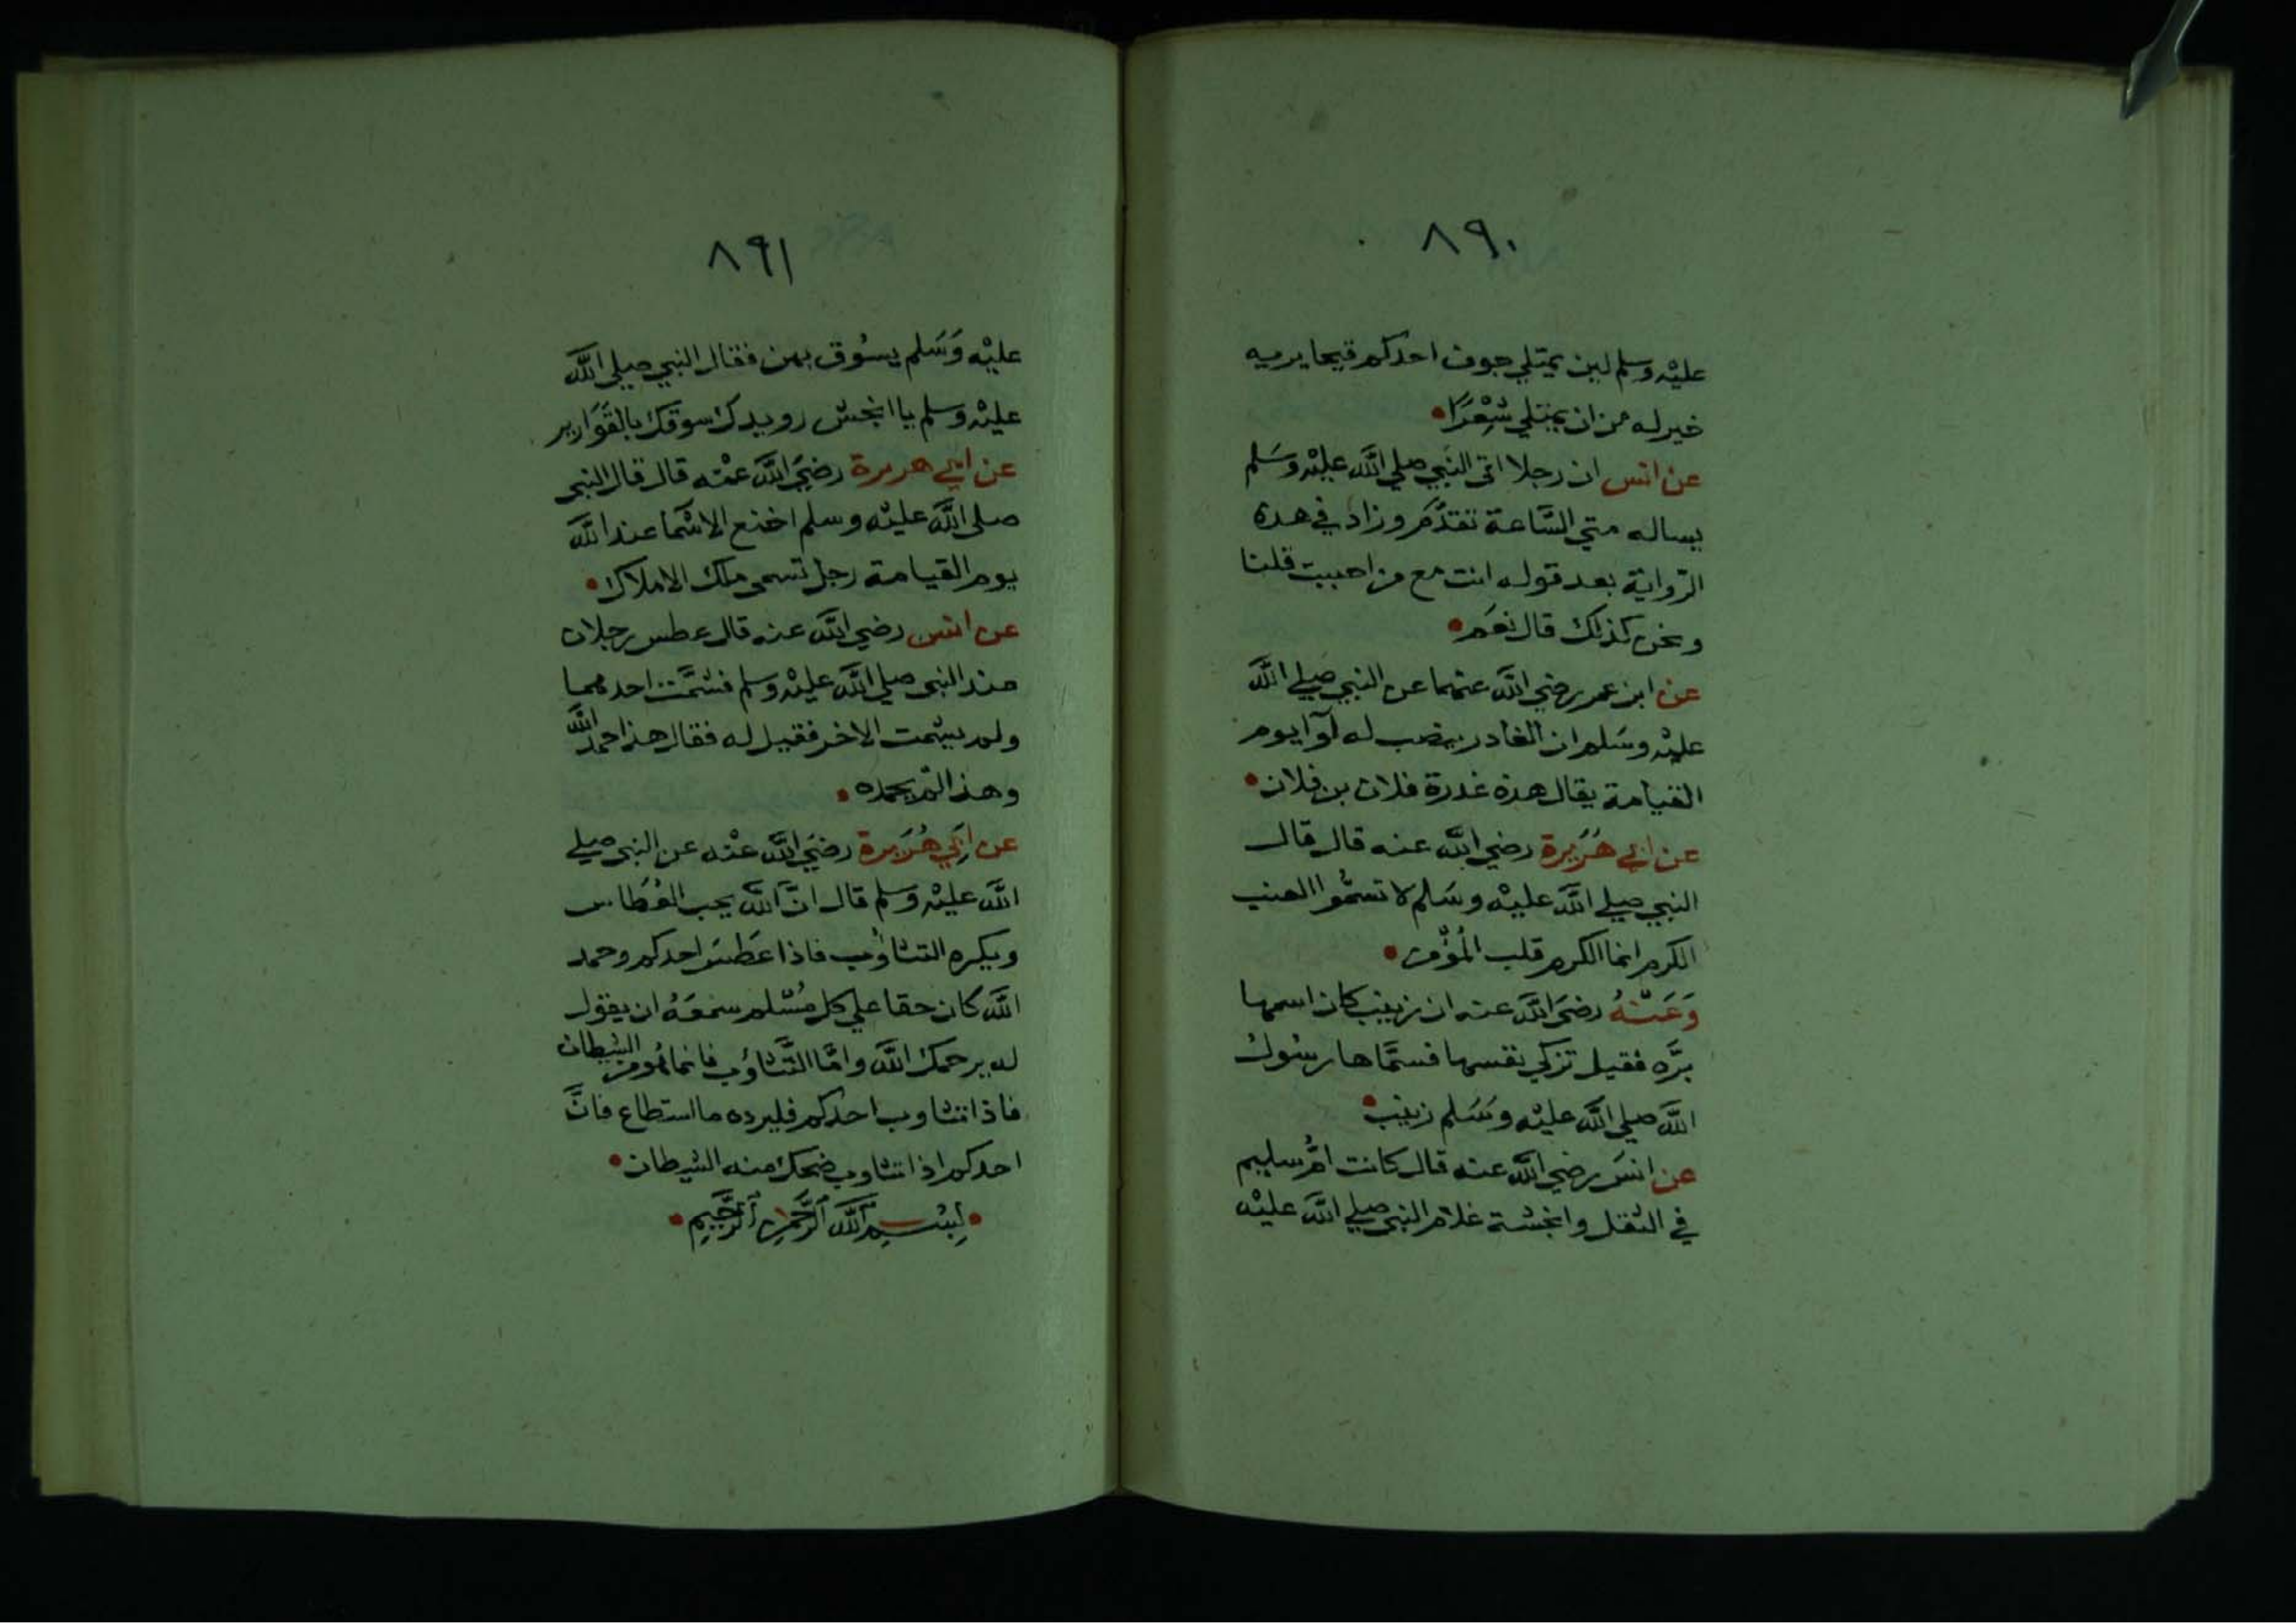 ٨٩٠
عليْه وسلم لين يمتلي جوف احدكم قيحا يريه
خير له من ان يمتلي شِعْرًا
عن انس ان رجلا اتى النَبي صلي اللَّه عليْه وسَلم
يساله متي السَّاعة تقدَّم وزاد في هذه
الرّواية بعد قوله انت مع من احببت قلنا
ونحن كذلك قال نعَم
عن ابن عمر رضي اللَّه عنهما عن النبي صَلي اللَّه
عليْه وسَلم ان الغادر ينصب له لوآ يوم
القيامة يقال هذه غدرة فلان بن فلان
عن ابي هُرَيرة رضي اللَّه عنه قال قال
النبي صلي اللَّه عليْه وسَلم لا تسمُّوا العنب
الكرم انما الكرم قلب المُؤمن
وَعَنْهُ رضيَ اللَّه عنه ان زينب كان اسمها
برَّه فقيل تزكي نفسها فسمَّاها رسُول
اللَّه صلي اللَّه عليْه وسَلم زينب
عن انسَ رضي اللَّه عنه قال كانت امُّ سليم
في الثقل وانجشة غلام النبي صلي اللَّه عليْه
٨٩١
عليْه وَسَلم يسُوق بهن فقال النبي صلي اللَّه
عليْه وسلم يا انجش رويدك سوقك بالقَوَارير
عن ابي هريرة رضيَ اللَّه عنْه قال قال النبي
صلي اللَّه عليْه وسلم اخنع الاسْمَا عند اللَّه
يوم القيامة رجل تسمى ملك الاملاك
عن انس رضي اللَّه عنه قال عطس رجلان
عند النبي صلي اللَّه عليْه وسلم فشمَّت احدهما
ولم يشمت الاخر فقيل له فقال هذا حمد اللَّه
وهذا لم يحمده
عن ابَي هُرَيرة رضيَ اللَّه عنْه عن النبي صلي
اللَّه عليْه وسلم قال انَّ اللَّه يحب العُطاس
ويكره التثاؤب فاذا عَطسَ احدكم وحمد
اللَّه كان حقا علي كل مُسْلم سمعَهُ ان يقول
له يرحمك اللَّه وامَّا التَّثاؤب فانما هُو من الشيطان
فاذا تثاوب احدكم فليرده ما استطاع فانَّ
احدكم اذا تثاوب ضحك منه الشيطان
بِسْمِ اللَّه الرَّحْمَنِ الرَّحِيمِ